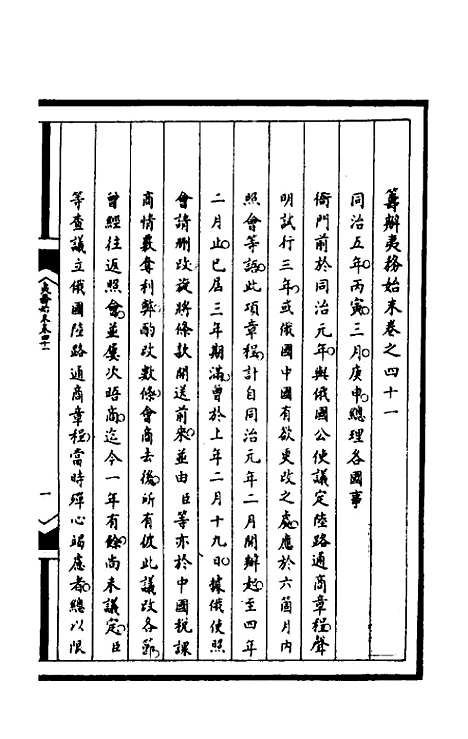 籌辦夷務始末卷之四十一
同治五年丙寅三月庚申總理各國事
衙門前於同治元年與俄國公使議定陸路通商章程聲
明試行三年或俄國中國有欲更改之處應於六箇月內
照會等語此項章程計自同治元年二月開辦起至四年
二月止已屆三年期滿曾於上年二月十九日據俄使照
會請刪改旋將條款開送前來並由臣等亦於中國稅課
商情數奪利弊酌改數條會商去後所有彼此議改各節
曾經往返照會並屢次晤商迄今一年有餘尚未議定臣
等查議立俄國陸路通商章程當時殫心竭慮者總以限
夷務始末卷四十一
一